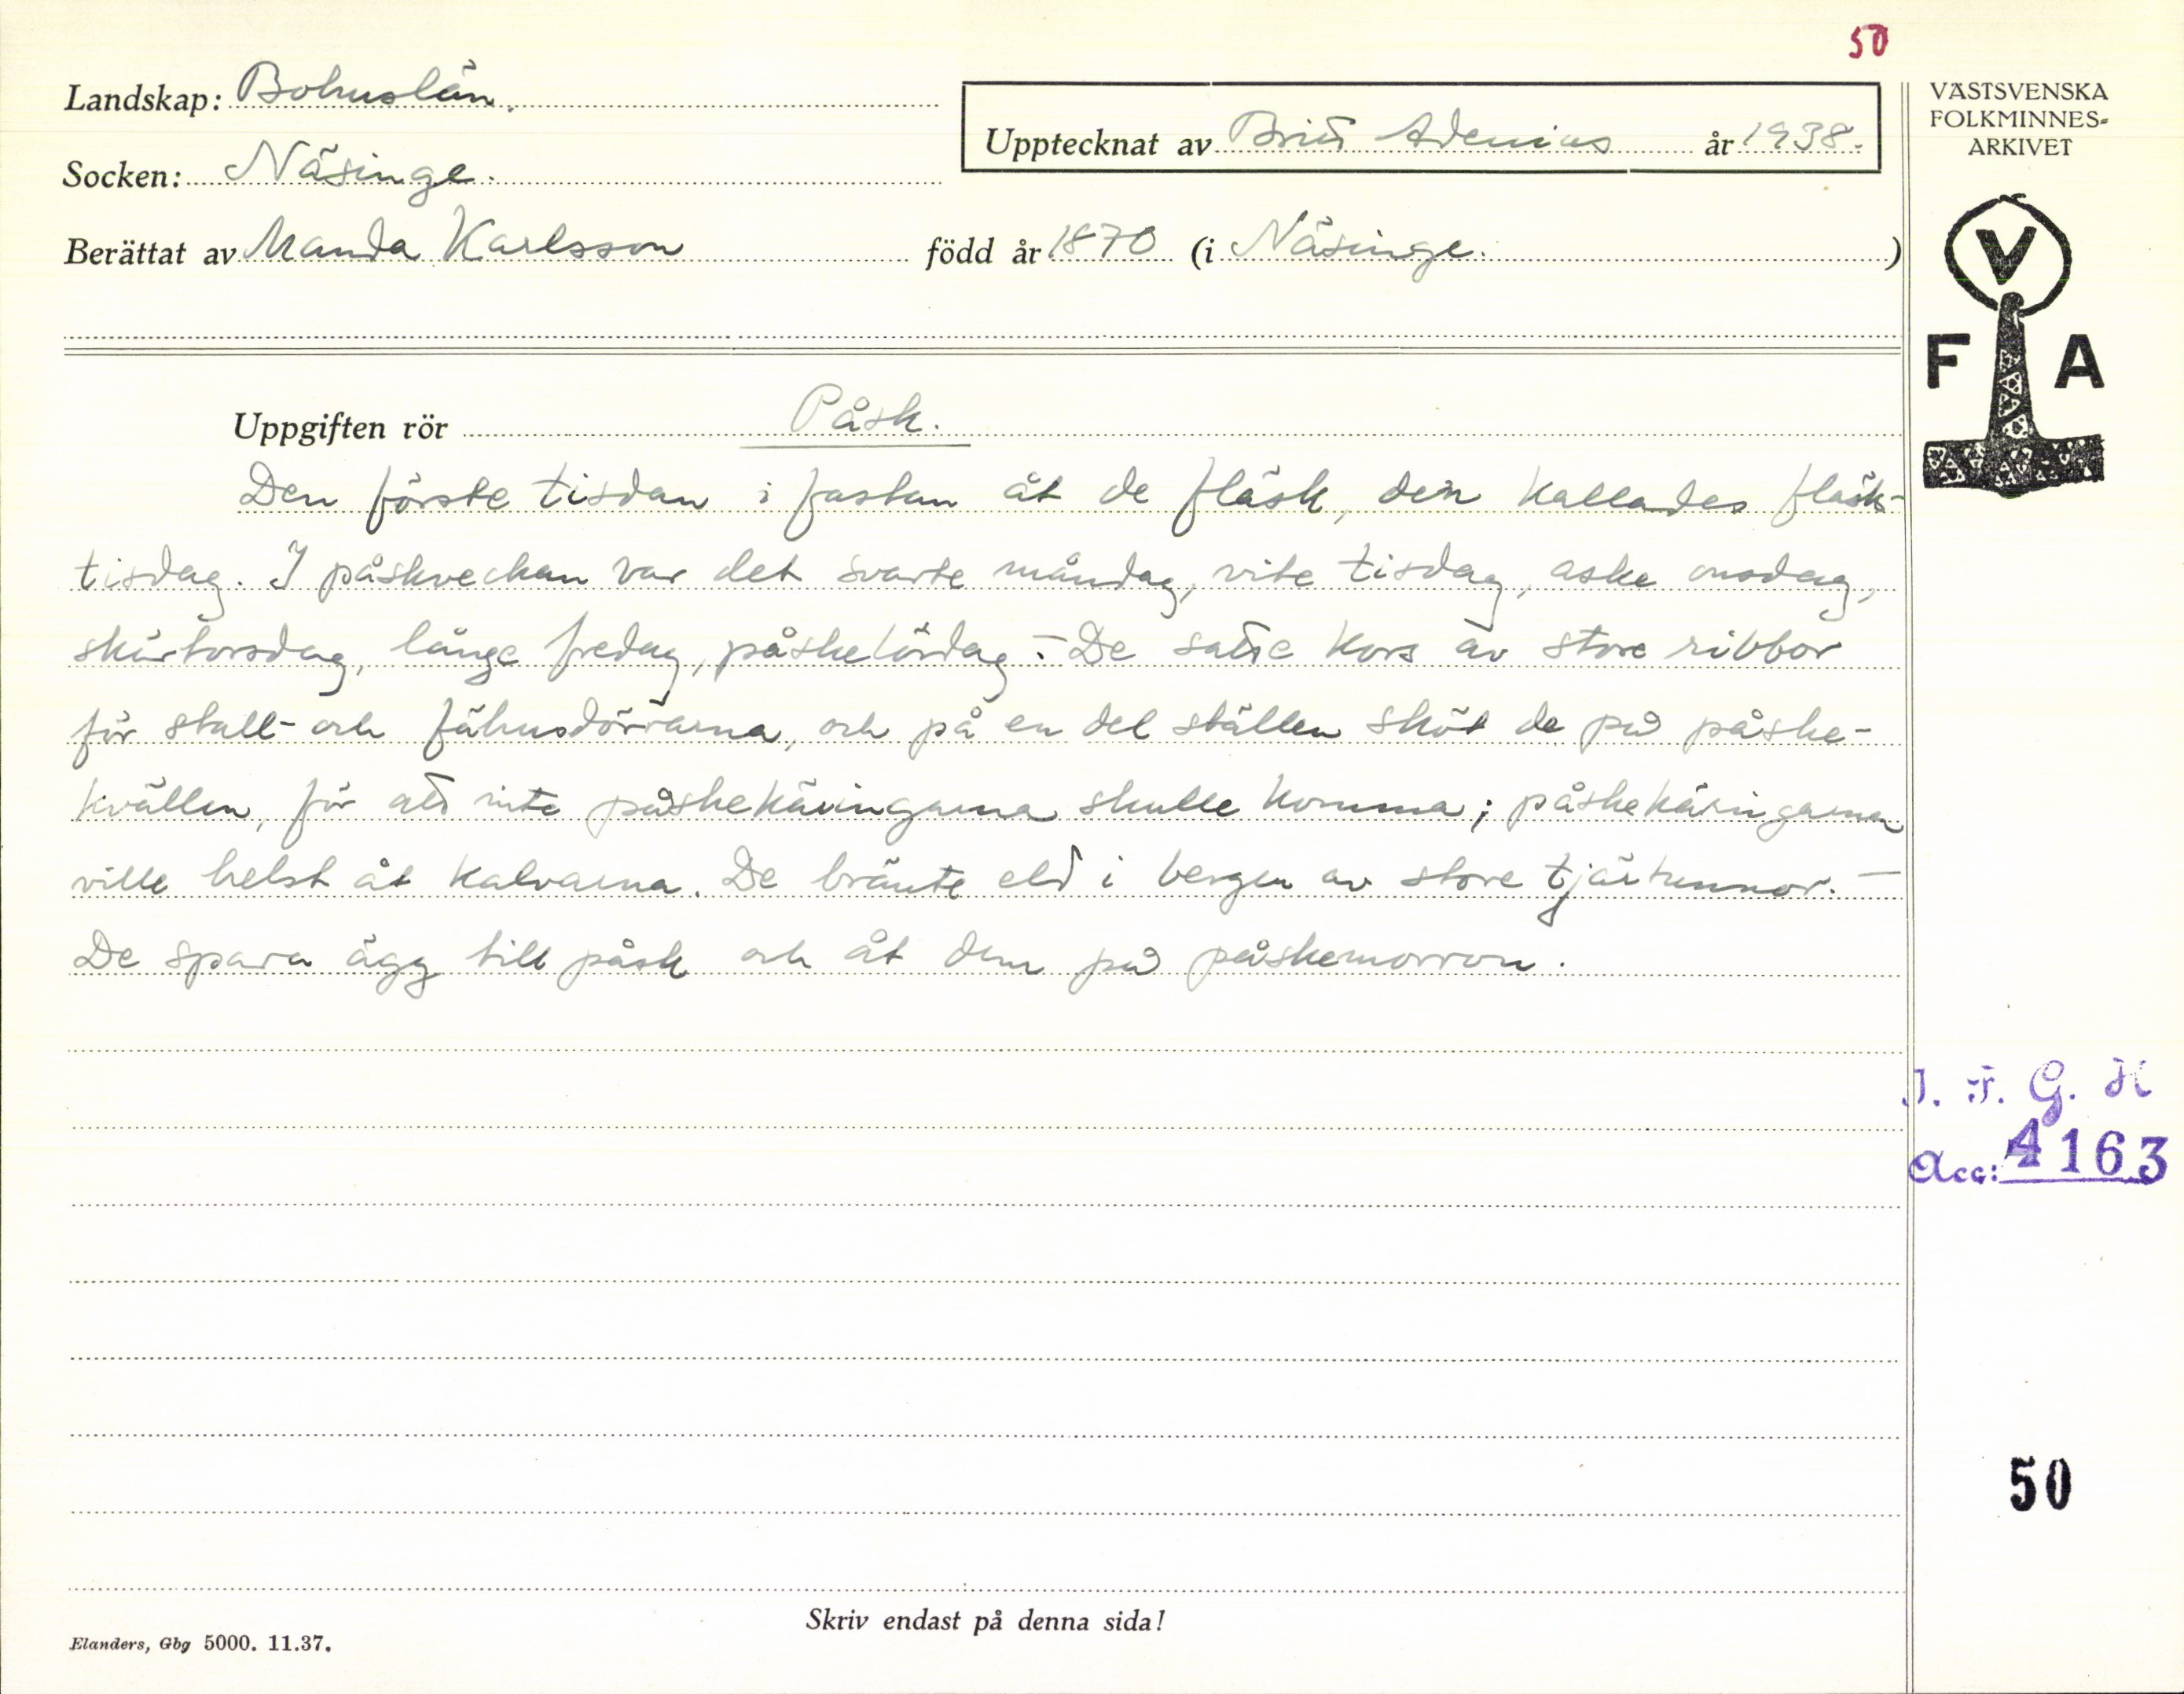 50
Landskap: Bohuslän.
Upptecknat av Britt Adenius år 1938.
Socken: Näsinge.
Berättat av Manda Karlsson född år 1870 (i Näsinge. )
VÄSTSVENSKA
FOLKMINNES-
ARKIVET
V
F A
Uppgiften rör Påsk.
Den förste tisdan i fastan åt de fläsk, den kallades fläsk-
tisdag. I påskveckan var det svarte måndag, vite tisdag, aske onsdag,
skärtorsdag, långe fredag, påskelördag. - De satte kors av store ribbor
för stall- och fähusdörrarna, och på en del ställen sköt de på påske-
kvällen, för att inte påskekäringarna skulle komma; påskekäringarna
ville helst åt kalvarna. De bränte eld i bergen av store tjärtunnor. -
De spara ägg till påsk och åt dem på påskemorron.
I. F. G. H
Acc: 4163
50
Skriv endast på denna sida!
Elanders, Gbg 5000. 11.37.